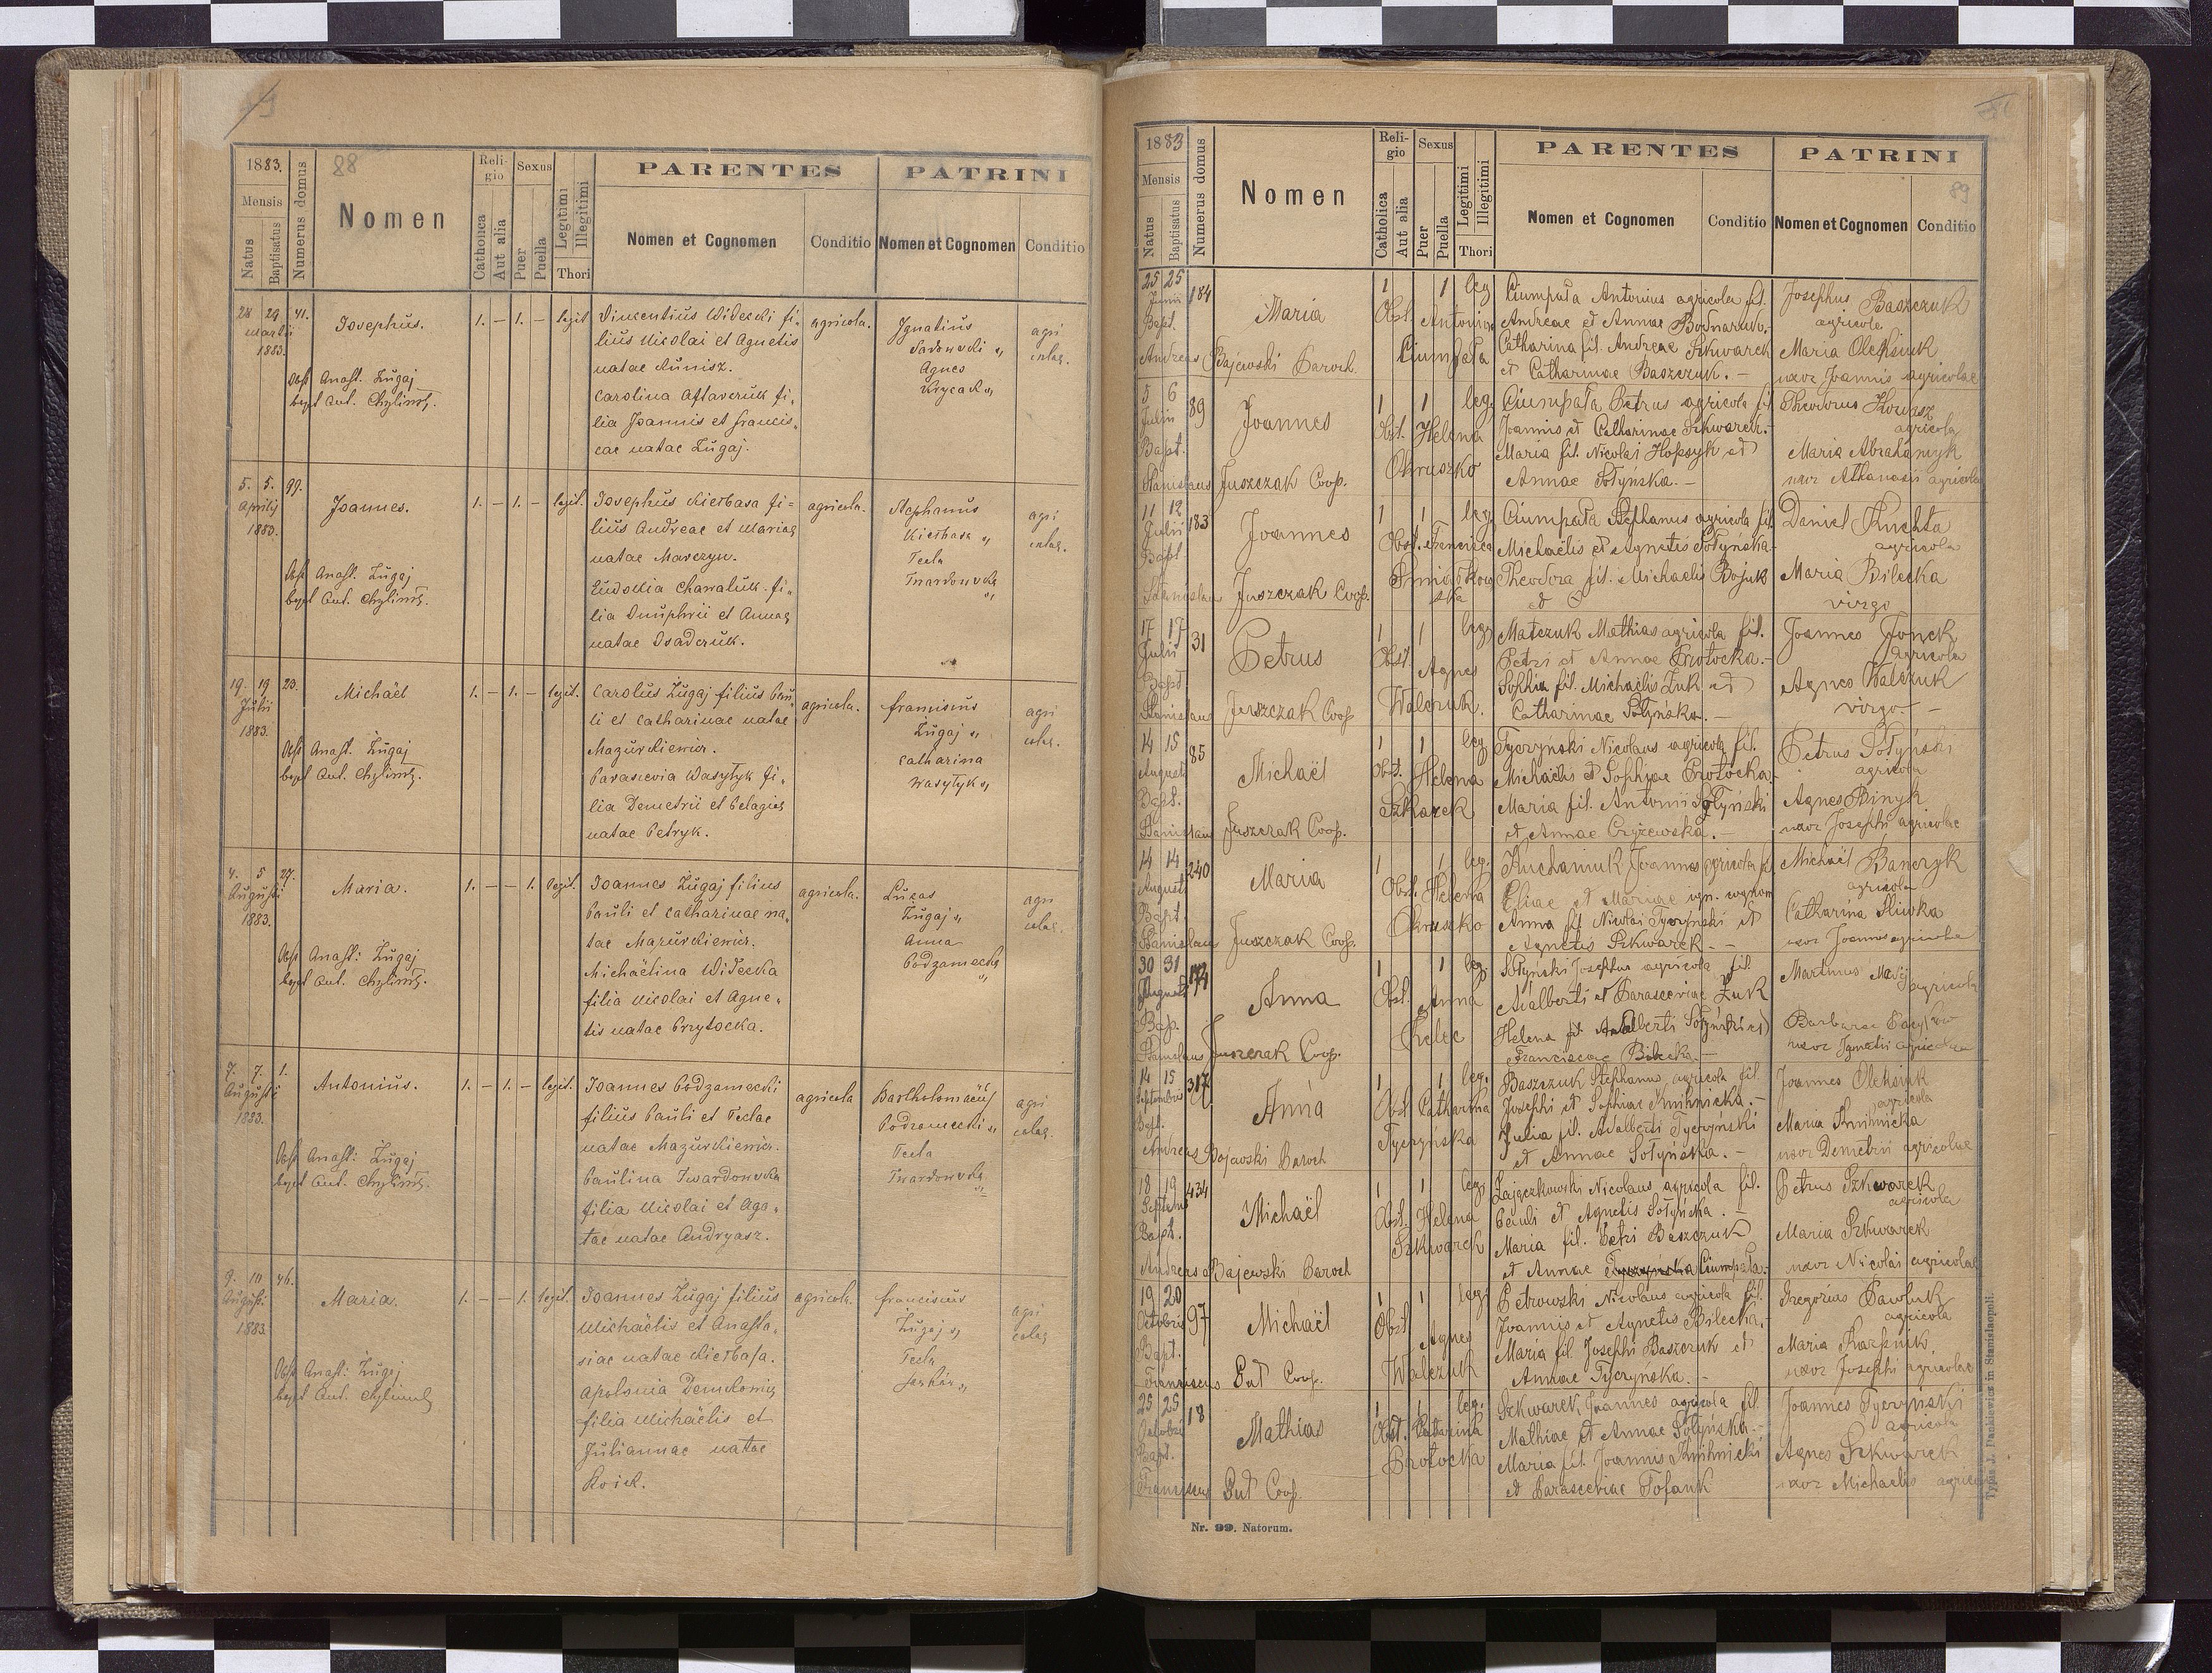 88
1883.
Mensis
Natus
Baptisatus
Numerus domus
Nomen
Religio
Catholica
Aut alia
Sexus
Puer
Puella
Legitimi
Illegitimi
Thori
PARENTES
Nomen et Cognomen
Conditio
PATRINI
Nomen et Cognomen
Conditio
28 29 41. Josephus. 1. – 1. – legit
Martii
1883.
Obst Anast. Zugaj
bapt Ant.
Vincentius Widecki fi-
lius Nicolai et Agnetis
natae
Carolina
lia Joannis et Francis-
cae natae Zugaj.
agricola.
Ignatius
Sadowski "
Agnes
agri
colae.
5. 5. 99. Joannes. 1. – 1. – legit.
Aprilij
1883.
Obst Anast. Zugaj
bapt Ant.
Josephus Kiełbasa fi=
lius Andreae et Mariae
natae
Eudokia fi-
lia Onuphrii et Annae
natae Osadczuk.
agricola.
Stephanus
Kiełbasa "
Tecla
Twardowska
"
agri
colae.
19. 19 23. Michaël 1. – 1. – legit.
Julii
1883.
Obst Anast. Zugaj
bapt Ant.
Carolus Zugaj filius Pau-
li et Catharinae natae
Mazurkiewicz.
Parascevia Wasyłyk fi-
lia Demetrii et Pelagiae
natae Petryk.
agricola.
Franciscus
Zugaj "
Catharina
Wasyłyk "
agri
colae.
4. 5 27. Maria. 1. – – 1. legit.
Augusti
1883.
Obst Anast: Zugaj
bapt Ant.
Joannes Zugaj filius
Pauli et Catharinae na-
tae Mazurkiewicz.
Michaëlina Widecka
filia Nicolai et Agne-
tis natae Przytocka.
agricola.
Lucas
Zugaj "
Anna
Podzamecka
"
agri
colae.
7. 7. 1. Antonius. 1. – 1. – legit.
Augusti
1883.
Obst Anast: Zugaj
bapt Ant.
Joannes Podzamecki
filius Pauli et Teclae
natae Mazurkiewicz.
Paulina Twardowska
filia Nicolai et Aga-
tae natae Andryasz.
agricola
Bartholomaeus
Podzamecki "
Tecla
Twardowska
"
agri
colae.
9. 10 46. Maria. 1. – – 1. legit.
Augusti.
1883.
Obst Anast: Zugaj
bapt Ant.
Joannes Zugaj filius
Michaëlis et Anasta-
siae natae Kiełbasa.
Apolonia
filia Michaëlis et
Juliannae natae
agricola.
Franciscus
Zugaj "
Tecla
agri
colae
89
1883
Mensis
Natus
Baptisatus
Numerus domus
Nomen
Religio
Catholica
Aut alia
Sexus
Puer
Puella
Legitimi
Illegitimi
Thori
PARENTES
Nomen et Cognomen
Conditio
PATRINI
Nomen et Cognomen
Conditio
25 25 184 Maria 1 1 leg
Junii
Bapt. Obst. Antonina
Andreas Bajewski Paroch Ciumpała
Ciumpała Antonius agricola fil.
Andreae et Annae Bodnaruk.
Catharina fil. Andreae Szkwarek
et Catharinae Baszczuk. –
Josephus Baszczuk
agricola
Maria Oleksiuk
uxor Joannis agricolae
5 6 89 Joannes 1 1 leg.
Julii
Bapt. Obst. Helena
Stanislaus Juszczak Coop. Okruszko
Ciumpała Petrus agricola fil
Joannis et Catharinae Szkwarek.–
Maria fil. Nicolai et
Annae Sołyńska. –
Theodorus
agricola
Maria
uxor Athanasii agricolae
11 12 183 Joannes 1 1 leg
Julii
Bapt Obst. Francisca
Stanislaus Juszczak Coop.
Ciumpała Stephanus agricola fil.
Michaëlis et Agnetis Sołyńska–
Theodora fil. Michaelis Bojuk
et
Daniel Kuchta
agricola
Maria Bilecka
virgo
17 17 31 Petrus 1 1 leg
Julii
Bapt Obst. Agnes
Stanislaus Juszczak Coop Walczuk.
Matczuk Mathias agricola fil.
Petri et Annae Protocka.–
Sophia fil. Michaelis Żuk et
Catharinae Sołyńska. –
Joannes
agricola
Agnes Walczuk
virgo –
14 15 85 Michaël 1 1 leg
Augusti
Bapt. Obst. Helena
Stanislaus Juszczak Coop. Szkwarek
Tyczyński Nicolaus agricola fil.
Michaëlis et Sophiae Protocka–
Maria fil. Antonii Sołyński
et Annae Czyżewska. –
Petrus Sołyński
agricola
Agnes Binyk
uxor Josephi agricolae
14 14 240 Maria 1 1 leg.
Augusti
Bapt. Obst. Helena
Stanislaus Juszczak Coop. Okruszko
Kuchaniuk Joannes agricola f.
Eliae et Mariae ign. cognom
Anna fil. Nicolai Tyczyński et
Agnetis Szkwarek –
Michaël Banczyk
agricola
Catharina Sliwka
uxor Joannis agricolae
30 31 Anna 1 1 leg.
Augusti
Bap. Obst. Anna
Stanislaus Juszczak Coop.
Sołyński Josephus agricola fil.
Adalberti et Parasceviae Żuk
Helena fil. Adalberti Sołyński et
Franciscae Bilecka. –
Martinus Maciej
agricola
Barbara
uxor Ignatii agricolae
14 15 317 Anna 1 1 leg.
Septembris
Bapt. Obst Catharina
Andreas Bajewski Paroch Tyczyńska
Baszczuk Stephanus agricola fil.
Josephi et Sophiae Knihnicka. –
Julia fil. Adalberti Tyczyński
et Annae Sołyńska. –
Joannes Oleksiuk
agricola
Maria Knihnicka
uxor Demetrii agricolae
18 19 434 Michaël 1 1 leg.
Septembris
Bapt. Obst. Helena
Andreas Bajewski Paroch Szkwarek
Zajączkowski Nicolaus agricola fil.
Pauli et Agnetis Sołyńska. –
Maria fil. Petri Baszczuk
et Annae Tyczyńska Ciumpała.
Petrus Szkwarek
agricola
Maria Szkwarek
uxor Nicolai agricolae
19 20 97 Michaël 1 1 leg.
Octobris
Bapt. Obst Agnes
Franciscus But Coop. Walczuk
Petrowski Nicolaus agricola fil.
Joannis et Agnetis Bilecka.–
Maria fil. Josephi Baszczuk et
Annae Tyczyńska. –
Gregorius Pawluk
agricola
Maria
uxor Josephi agricolae
25 25 18 Mathias 1 1 leg.
Octobris
Bapt. Obst. Catharina
Franciscus But Coop. Protocka
Szkwarek Joannes agricola fil.
Mathiae et Annae Sołyńska–
Maria fil. Joannis Knihnicki
et Parasceviae Tofaniuk
Joannes Tyczyński
agricola
Agnes Szkwarek
uxor Michaelis agricolae
Nr. 99. Natorum.
Typus J. Dankiewicz in Stanislaopoli.